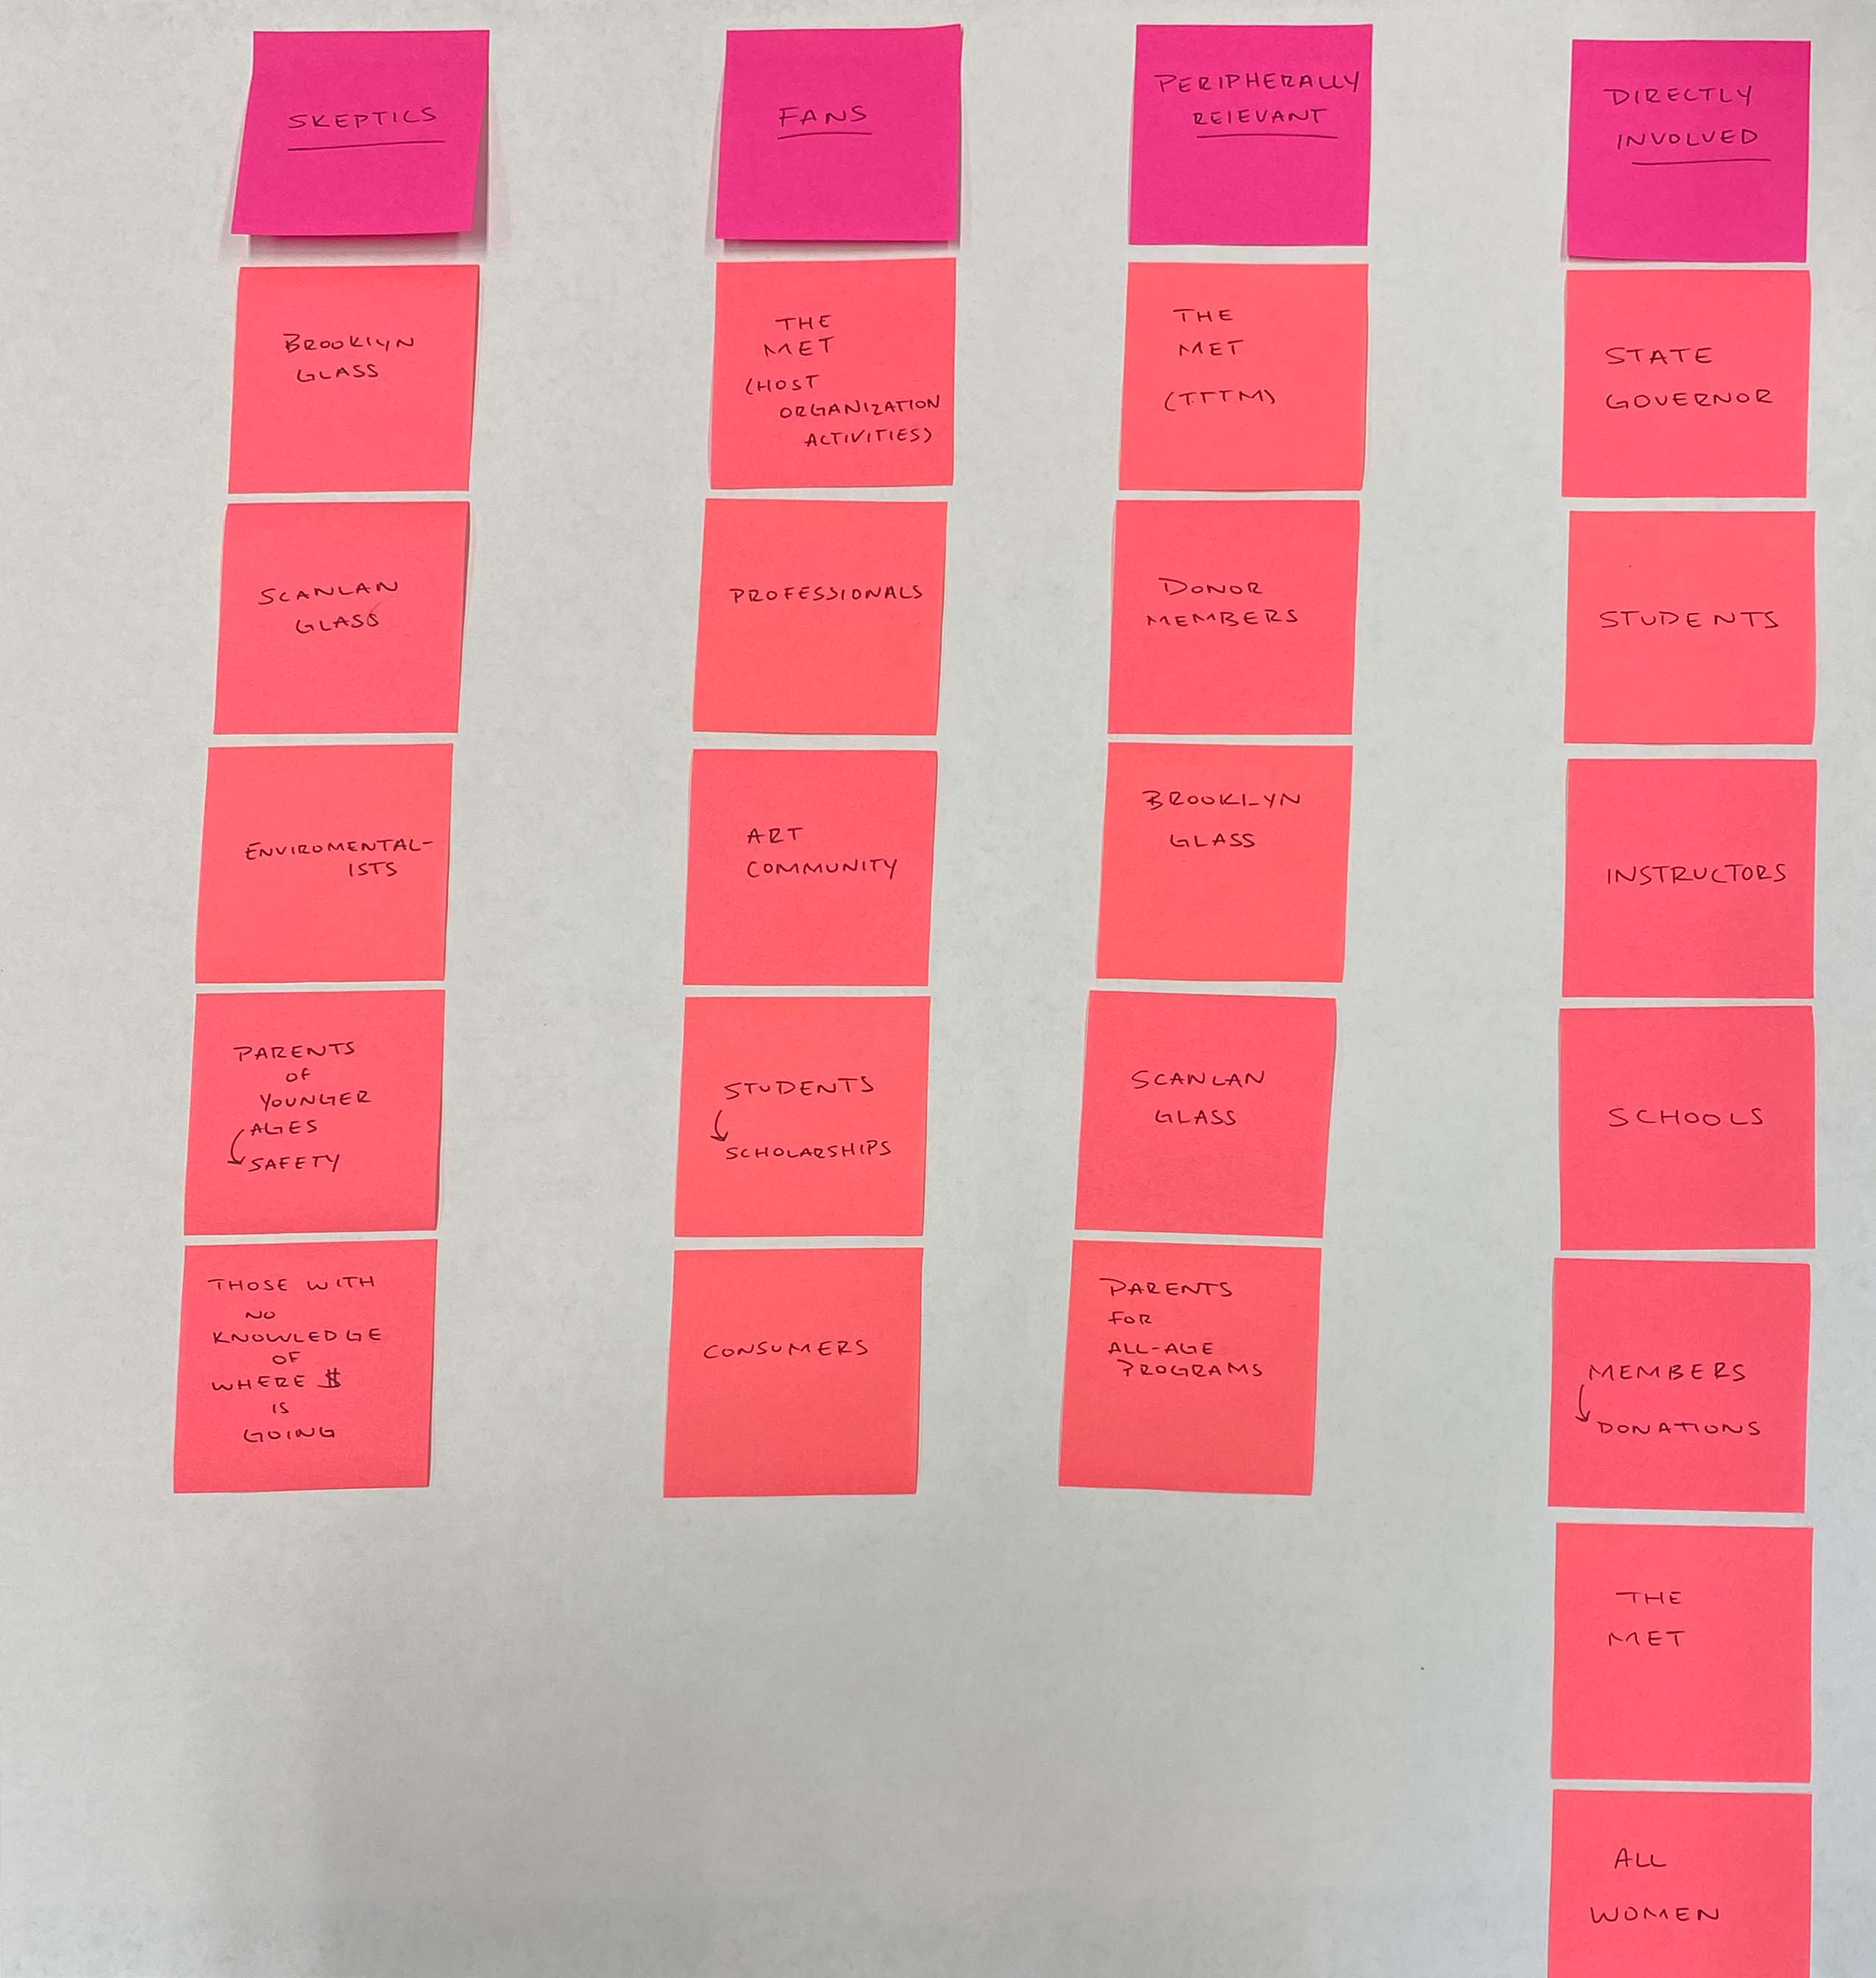 SKEPTICS
BROOKLYN
GLASS
SCANLAN
GLASS
ENVIROMENTAL-
ISTS
PARENTS
OF
YOUNGER
AGES
SAFETY
THOSE WITH
NO
KNOWLEDGE
OF
WHERE $
IS
GOING
FANS
THE
MET
(HOST
ORGANIZATION
ACTIVITIES)
PROFESSIONALS
ART
COMMUNITY
STUDENTS
SCHOLARSHIPS
CONSUMERS
PERIPHERALLY
RELEVANT
THE
MET
(TTTM)
DONOR
MEMBERS
BROOKLYN
GLASS
SCANLAN
GLASS
PARENTS
FOR
ALL-AGE
PROGRAMS
DIRECTLY
INVOLVED
STATE
GOVERNOR
STUDENTS
INSTRUCTORS
SCHOOLS
MEMBERS
DONATIONS
THE
MET
ALL
WOMEN